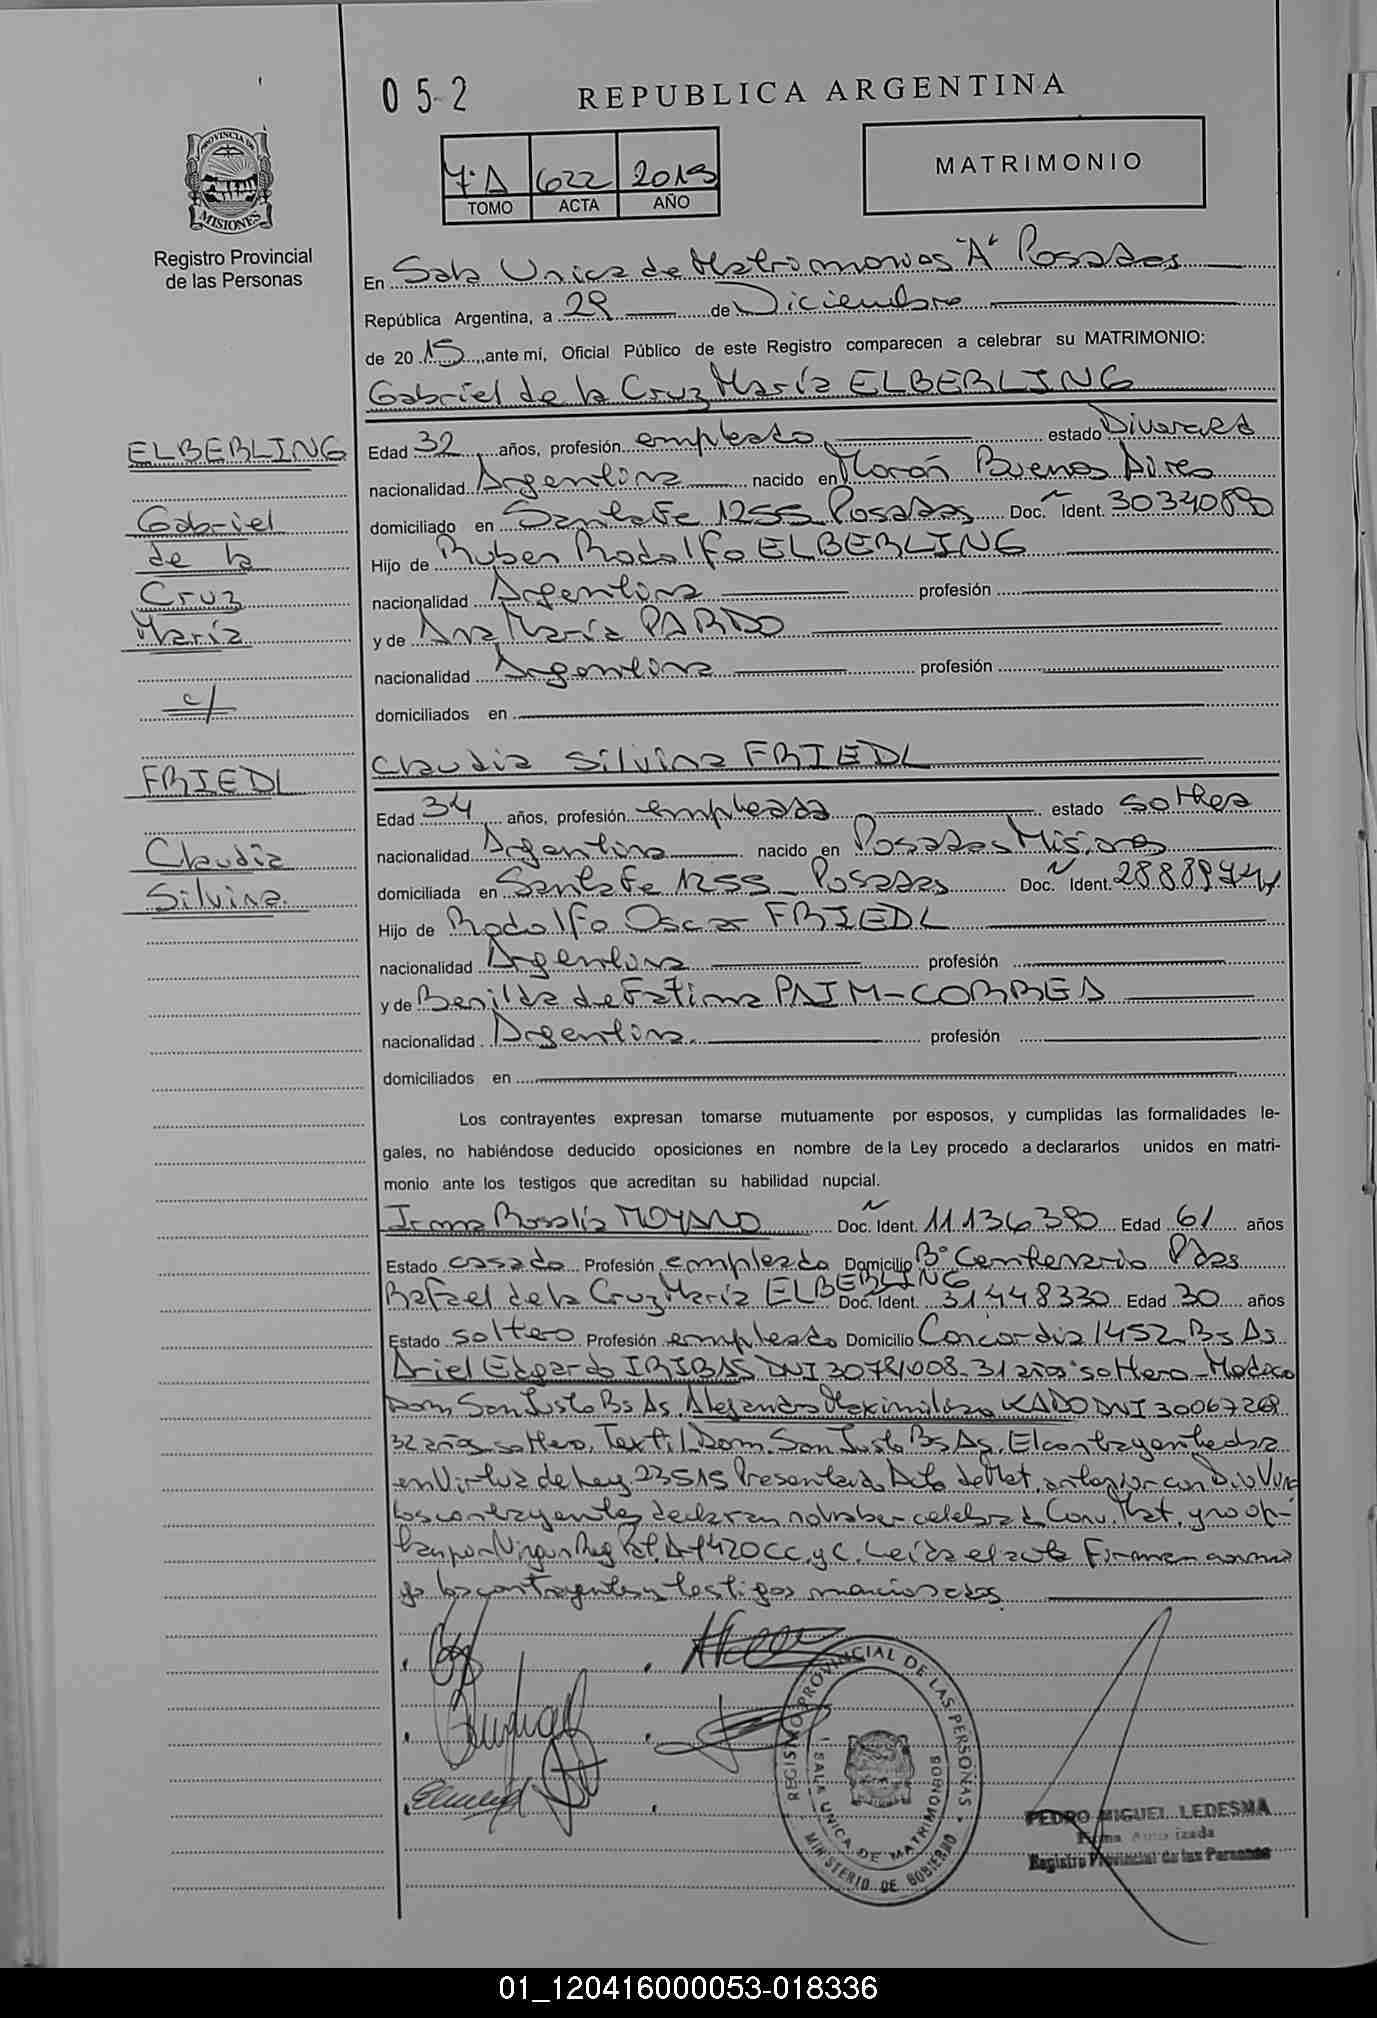 05-2
REPUBLICA ARGENTINA
7ºA 622 2015
TOMO ACTA AÑO
MATRIMONIO
PROVINCIA DE
MISIONES
Registro Provincial
de las Personas
En Sala Unica de Matrimonios "A" Posadas
República Argentina, a 29 de Diciembre
de 2015, ante mí, Oficial Público de este Registro comparecen a celebrar su MATRIMONIO:
Gabriel de la Cruz María ELBERLING
ELBERLING
Gabriel
de la
Cruz
María
c/
FRIEDL
Claudia
Silvina.
Edad 32 años, profesión empleado estado Divorciad
nacionalidad Argentina nacido en Morón Buenos Aires
domiciliado en Santa Fe 1255 Posadas Doc. Ident. 30340890
Hijo de Ruben Rodolfo ELBERLING
nacionalidad Argentina profesión
y de Ana María PARDO
nacionalidad Argentina profesión
domiciliados en
Claudia Silvina FRIEDL
Edad 34 años, profesión empleada estado soltera
nacionalidad Argentina nacido en Posadas Misiones
domiciliada en Santa Fe 1255 - Posadas Doc. Ident.
Hijo de Rodolfo Oscar FRIEDL
nacionalidad Argentina profesión
y de Benilda de Fatima PAIM-CORREA
nacionalidad Argentina. profesión
domiciliados en
Los contrayentes expresan tomarse mutuamente por esposos, y cumplidas las formalidades le-
gales, no habiéndose deducido oposiciones en nombre de la Ley procedo a declararlos unidos en matri-
monio ante los testigos que acreditan su habilidad nupcial.
Irma Rosalía MOYANO Doc. Ident. 11.136.390 Edad 61 años
Estado casada Profesión empleada Domicilio Bº Centenario Pdas
Rafael de la Cruz María ELBERLING Doc. Ident. 31448330 Edad 30 años
Estado soltero Profesión empleado Domicilio Concordia 1452 Bs As
Ariel Edgardo IRIBAS DNI 31 años soltero - Medico
Dom. San Justo Bs As. Alejandro Maximiliano KADO DNI
32 años soltero. Textil. Dom. San Justo Bs As. El contrayente
en Virtud de Ley 23515 Presentando Acta de Mat. anterior con
los contrayentes declaran no haber celebrado Conv. Mat. y no op-
tan por A-420 CC. y C. Leida el acta Firman
los contrayentes y testigos mencionados.
REGISTRO PROVINCIAL DE LAS PERSONAS
SALA UNICA DE MATRIMONIOS
MINISTERIO DE GOBIERNO
PEDRO MIGUEL LEDESMA
Firma Autorizada
Registro Provincial de las Personas
01_120416000053-018336